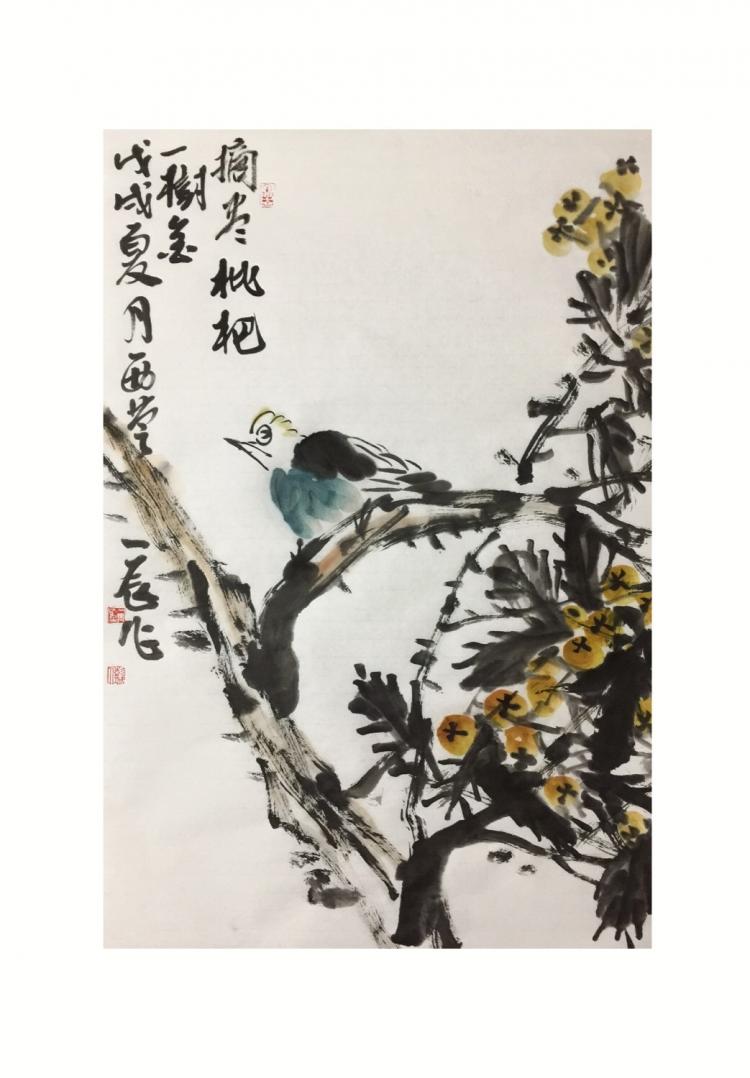 摘尽枇杷
一樹金
戊戌夏月西营
一辰作